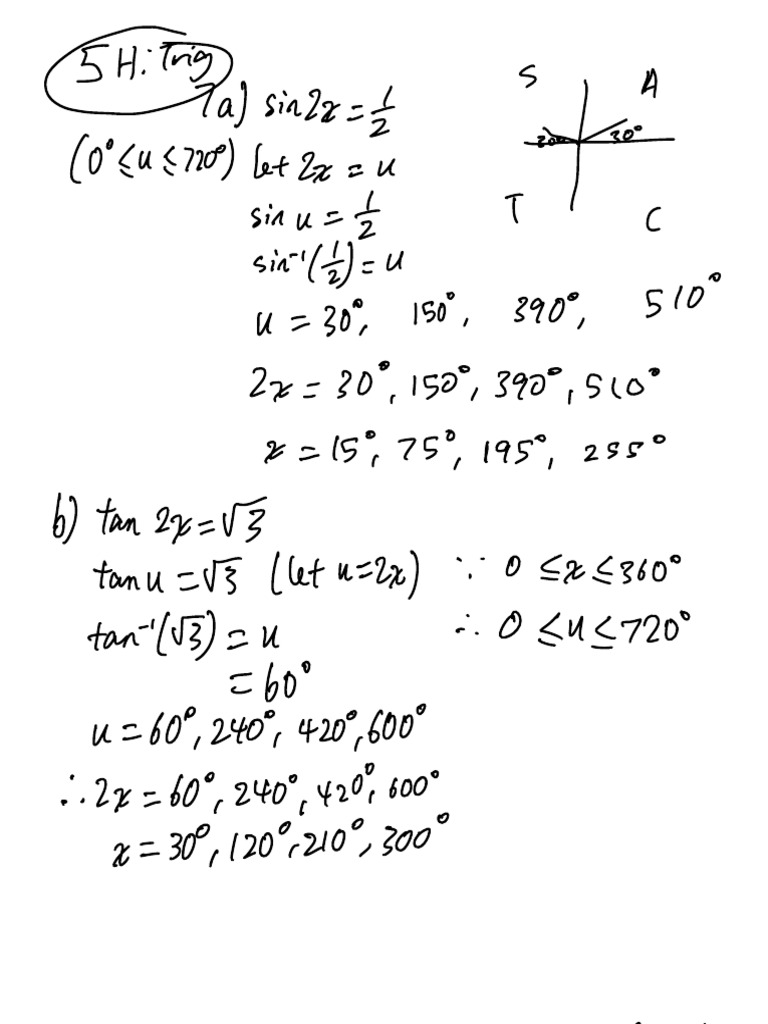 5H: Trig
7a) sin2x = 1/2
S A
30° 30°
T C
(0° ≤ u ≤ 720°) let 2x = u
sin u = 1/2
sin⁻¹(1/2) = u
u = 30°, 150°, 390°, 510°
2x = 30°, 150°, 390°, 510°
x = 15°, 75°, 195°, 255°
b) tan 2x = √3
tan u = √3 (let u = 2x) ∵ 0 ≤ x ≤ 360°
tan⁻¹(√3) = u ∴ 0 ≤ u ≤ 720°
= 60°
u = 60°, 240°, 420°, 600°
∴ 2x = 60°, 240°, 420°, 600°
x = 30°, 120°, 210°, 300°